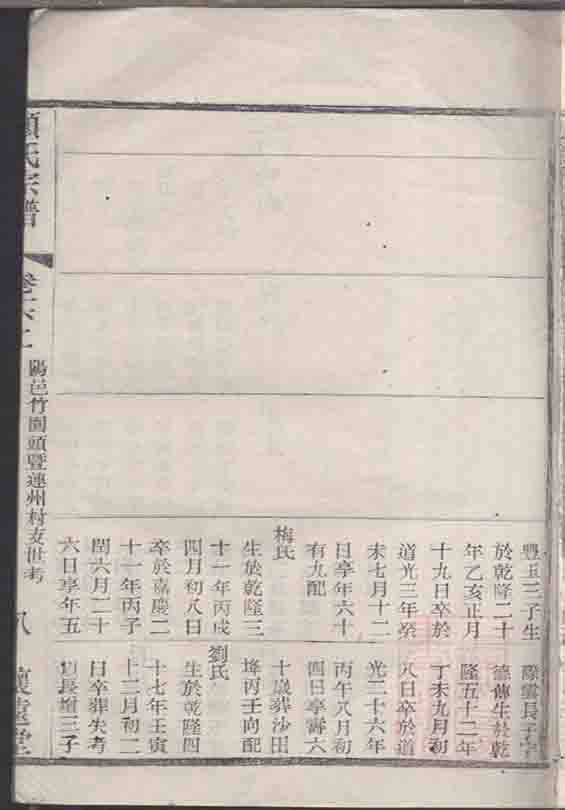 豐玉三子生
於乾隆二十
年乙亥正月
十九日卒於
道光三年癸
未七月十二
日享年六十
有九配
梅氏
生於乾隆三
十一年丙戌
四月初八日
卒於嘉慶二
十一年丙子
閏六月二十
六日享年五
雲長子字
德傳生於乾
隆五十二年
丁未九月初
八日卒於道
光二十六年
丙午八月初
四日享壽六
十歲葬沙田
丙壬向配
劉氏
生於乾隆四
十七年壬寅
十二月初二
日卒葬失考
長三子
氏宗譜
卷六上
陽邑竹園頭暨連州村支世考
八
懷遠堂